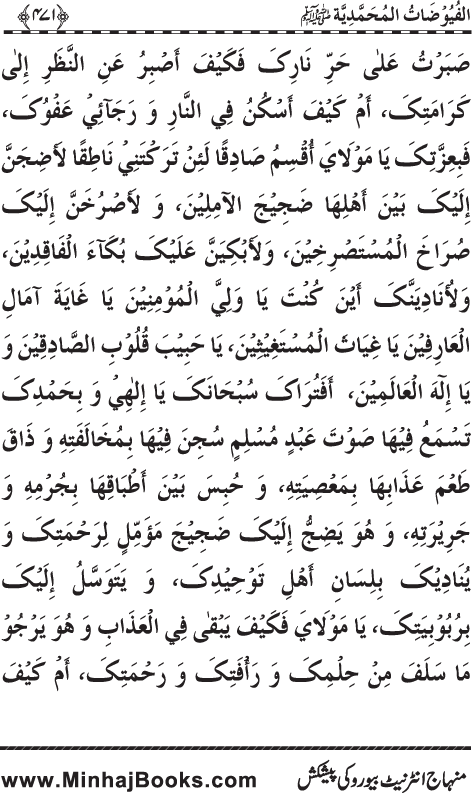 الۡفُیُوۡضَاتُ الۡمُحَمَّدِیَّة ﷺ ﴿۴۷۱﴾
صَبَرۡتُ عَلٰی حَرِّ نَارِکَ فَکَیۡفَ أَصۡبِرُ عَنِ النَّظَرِ إِلٰی
کَرَامَتِکَ، أَمۡ کَیۡفَ أَسۡکُنُ فِي النَّارِ وَ رَجَآئِيۡ عَفۡوُکَ،
فَبِعِزَّتِکَ یَا مَوۡلَايَ أُقۡسِمُ صَادِقًا لَئِنۡ تَرَکۡتَنِيۡ نَاطِقًا لَأَضِجَنَّ
إِلَیۡکَ بَیۡنَ أَهۡلِهَا ضَجِیۡجَ الآمِلِیۡنَ، وَ لَأَصۡرُخَنَّ إِلَیۡکَ
صُرَاخَ الۡمُسۡتَصۡرِخِیۡنَ، وَلَأَبۡکِیَنَّ عَلَیۡکَ بُکَآءَ الۡفَاقِدِیۡنَ،
وَلَأُنَادِیَنَّکَ أَیۡنَ کُنۡتَ یَا وَلِيَّ الۡمُوۡمِنِیۡنَ یَا غَایَةَ آمَالِ
الۡعَارِفِیۡنَ یَا غِیَاثَ الۡمُسۡتَغِیۡثِیۡنَ، یَا حَبِیۡبَ قُلُوۡبِ الصَّادِقِیۡنَ وَ
یَا إِلٰهَ الۡعَالَمِیۡنَ، أَفَتُرَاکَ سُبۡحَانَکَ یَا إِلٰهِيۡ وَ بِحَمۡدِکَ
تَسۡمَعُ فِیۡهَا صَوۡتَ عَبۡدٍ مُسۡلِمٍ سُجِنَ فِیۡهَا بِمُخَالَفَتِهِ وَ ذَاقَ
طَعۡمَ عَذَابِهَا بِمَعۡصِیَتِهِ، وَ حُبِسَ بَیۡنَ أَطۡبَاقِهَا بِجُرۡمِهِ وَ
جَرِیۡرَتِهِ، وَ هُوَ یَضِجُّ إِلَیۡکَ ضَجِیۡجَ مَؤَمِّلٍ لِرَحۡمَتِکَ وَ
یُنَادِیۡکَ بِلِسَانِ أَهۡلِ تَوۡحِیۡدِکَ، وَ یَتَوَسَّلُ إِلَیۡکَ
بِرُبُوۡبِیَتِکَ، یَا مَوۡلَايَ فَکَیۡفَ یَبۡقٰی فِي الۡعَذَابِ وَ هُوَ یَرۡجُوۡ
مَا سَلَفَ مِنۡ حِلۡمِکَ وَ رَأۡفَتِکَ وَ رَحۡمَتِکَ، أَمۡ کَیۡفَ
منہاج انٹرنیٹ بیورو کی پیشکش www.MinhajBooks.com